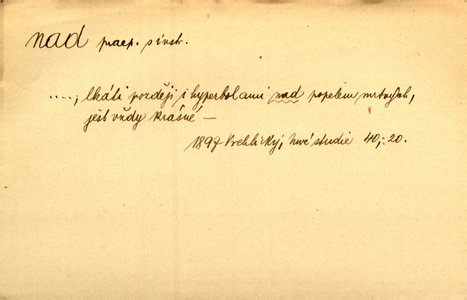 nad praep. s instr.
....; lkáti později i hyperbolami nad popelem mrtvých,
jest vždy krásné —
1897 Vrchlický, Nové studie 40,-20.